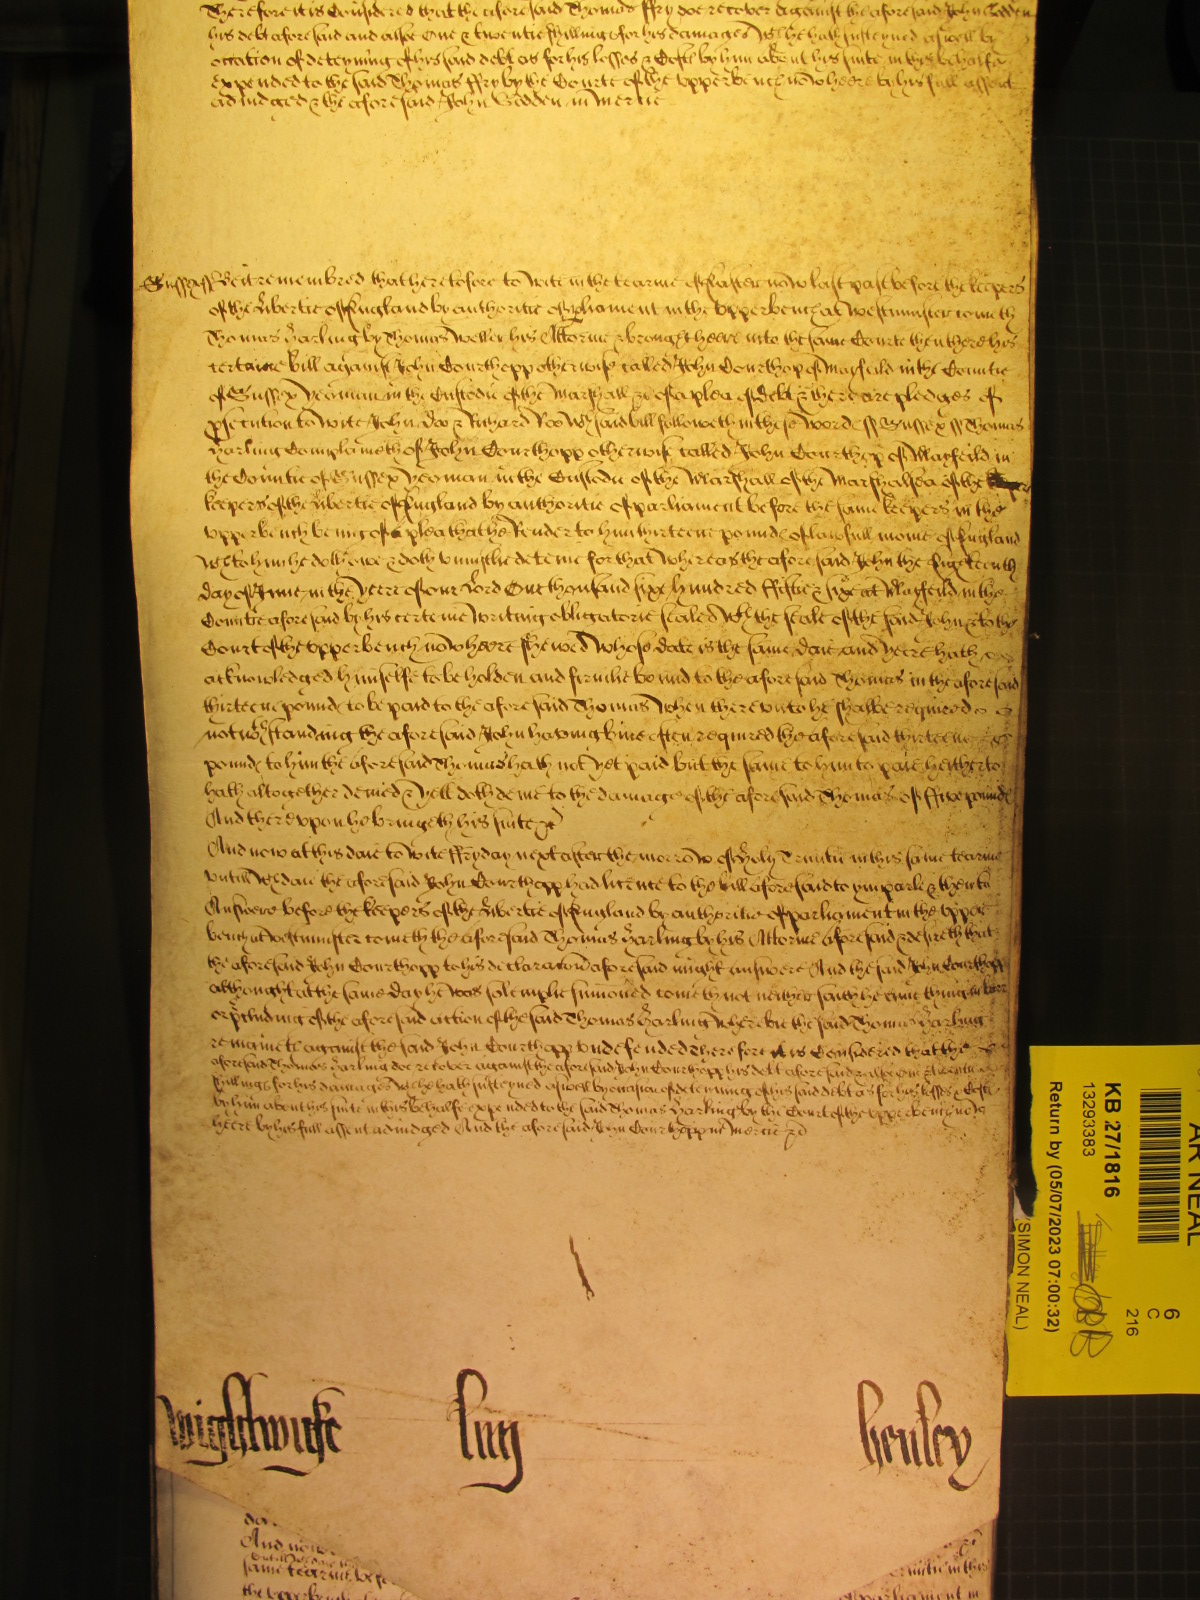 Therefore it is Considered that the aforesaid Thomas ffry doe recover against the aforesaid John Gedden
his debt aforesaid and alsoe One & twentie shillings for his damages wch he hath susteyned aswell by
occasion of deteyning of his said debt as for his losses & Costs by him about his suite in this behalfe
expended to the said Thomas ffry by the Courte of the upper bench now heere by his full assent
adiudged & the aforesaid John Gedden in Mercie
Sussex ss Be it remembred that heretofore to wite in the tearme of Easter now last past before the keepers
of the libertie of England by authoritie of parliament in the Upper bench at Westminster cometh
Thomas Harling by Thomas Weller his Attornie & brought heere into the same Courte then there his
certaine bill against John Courthopp otherwise called John Courthop of Mayfeild in the Countie
of Sussex Yeoman in the Custodie of the Marshall &c of a plea of debt & there are pledges of
psecution to wite John Doo & Richard Roo Wch said bill followeth in these words ss Sussex ss Thomas
Harling Complaineth of John Courthopp otherwise called John Courthop of Mayfeild in
the Countie of Sussex Yeoman in the Custodie of the Marshall of the Marshalsea of the
keepers of the libertie of England by authoritie of parliament before the same keepers in the
upper bench being of a plea that he Render to him thirteene pounds of lawfull monie of England
wch to him he doth owe & doth uniustlie deteine for that Whereas the aforesaid John the Eighteenth
day of June in the Yeere of our Lord One thousand sixe hundred ffiftie & sixe at Mayfeild in the
Countie aforesaid by his certeine writing obligatorie sealed wth the seale of the said John & to the
Court of the upper bench now heere shewed Whose date is the same daie and yeere hath
acknowledged himselfe to be holden and firmlie bound to the aforesaid Thomas in the aforesaid
thirteene pounds to be paid to the aforesaid Thomas when thereunto he should be required
notwthstanding the aforesaid John having bine often required the aforesaid thirteene
pounds to him the aforesaid Thomas hath not yet paid but the same to him to paie heitherto
hath altogether denied & yett doth denie to the damage of the aforesaid Thomas of ffive pounds
And thereupon he bringeth his suite &c
And now at this daie to wite ffryday next after the morrow of Holy Trinitie in this same tearme
untill wch daie the aforesaid John Courthopp had licence to the bill aforesaid to imparle & then to
Answere before the keepers of the libertie of England by authoritie of parliament in the upper
bench at Westminster cometh the aforesaid Thomas Harling by his Attornie aforesaid & desireth that
the aforesaid John Courthopp to his declaracon aforesaid might answere And the said John Courthopp
although att the same day he was solemplie sumoned cometh not neither saith he anie thing in barr
or pcluding of the aforesaid action of the said Thomas Harling whereby the said Thomas Harling
remaineth against the said John Courthopp undefended Therefore it is Considered that the
aforesaid Thomas Harling doe recover against the aforesaid John Courthopp his debt aforesaid & alsoe One & twentie
shillings for his damages wch he hath susteyned aswell by occasion of deteyning of his said debt as for his losses & Costs
by him about his suite in this behalfe expended to the said Thomas Harling by the Court of the upper bench now
heere by his full assent adiudged And the aforesaid John Courthopp in Mercie &c
wightwicke luy henley
And now
same tearme
the upper
parliament in
KB 27/1816
13293383
Return by (05/07/2023 07:00:32)
(SIMON NEAL)
AR NEAL
6
C
216